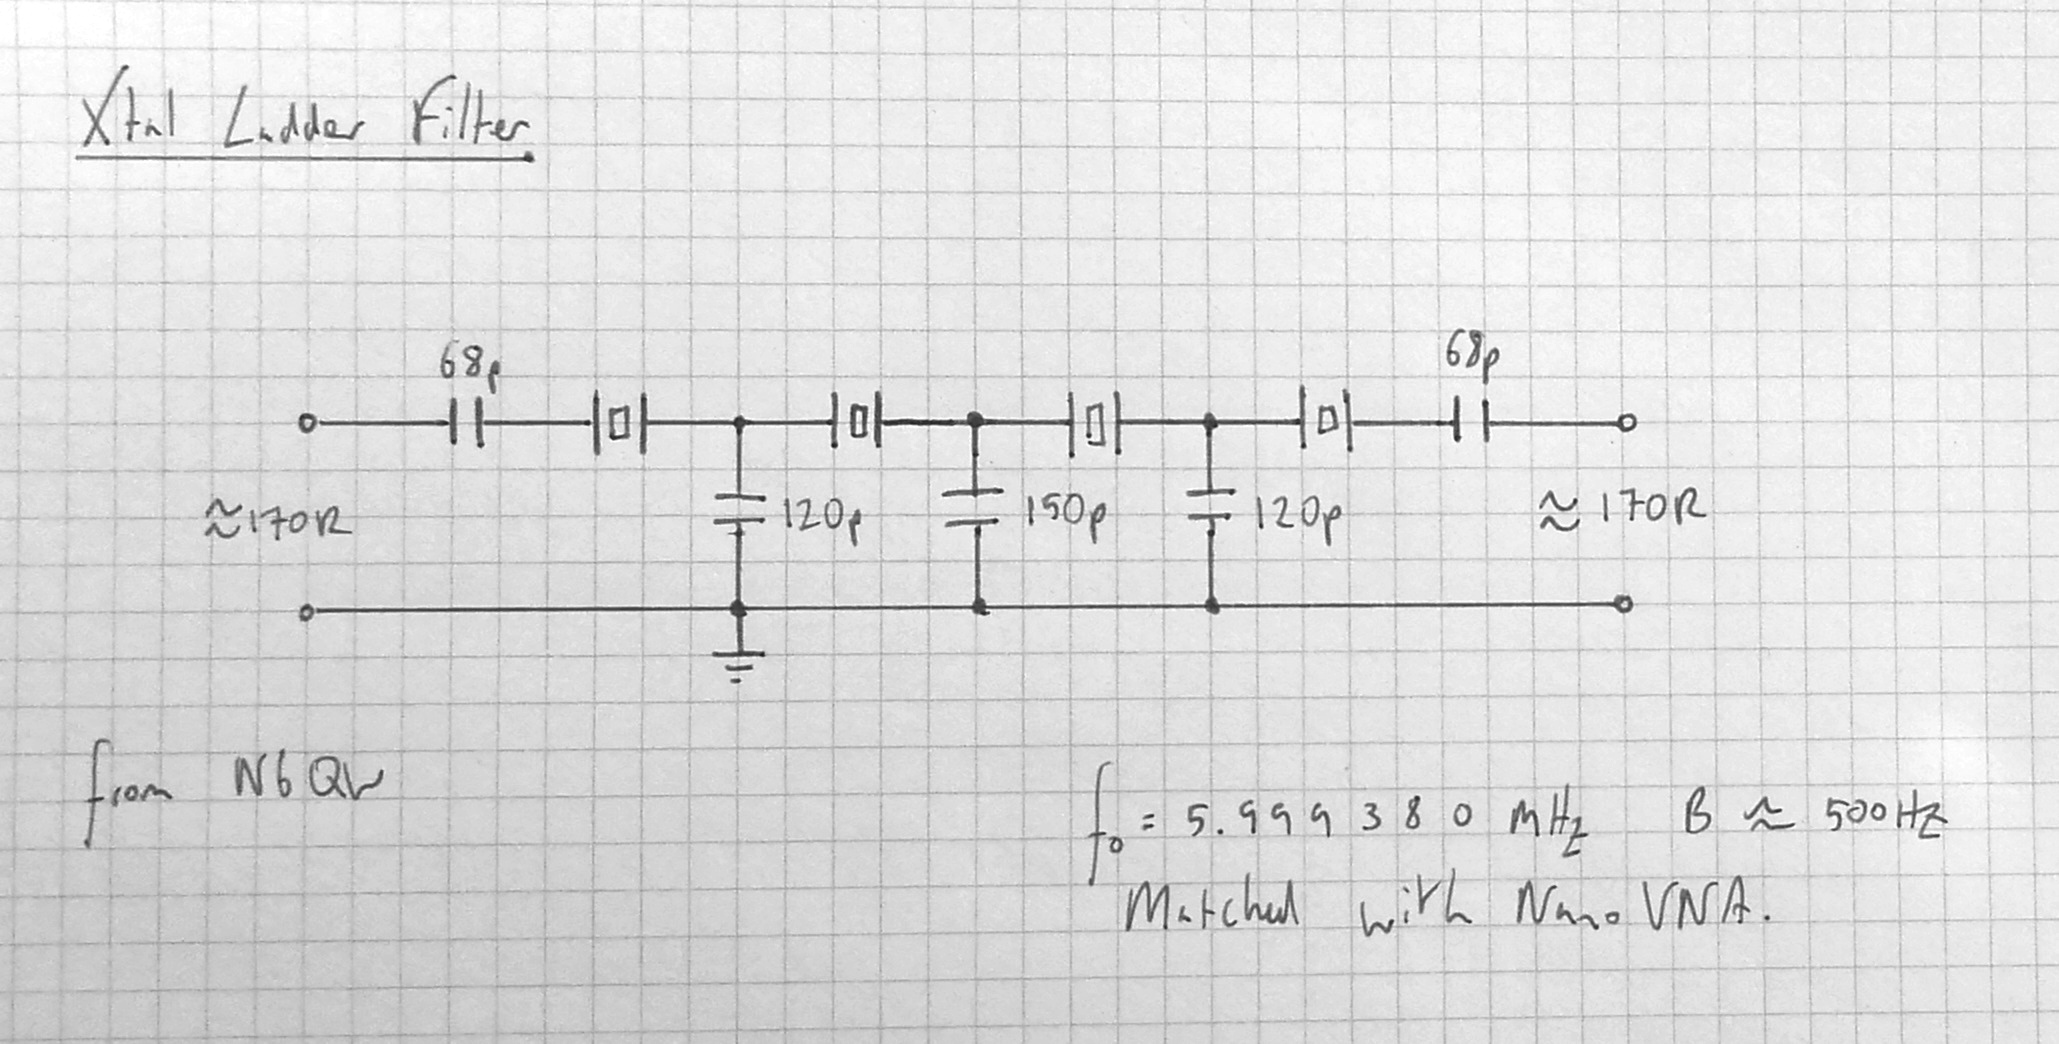 Xtal Ladder Filter
68p 68p
≈170R 120p 150p 120p ≈ 170R
from N6QW
f₀ = 5.999 380 MHz B ≈ 500Hz
Matched with NanoVNA.